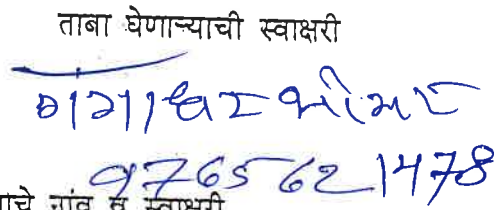 ताबा घेणाऱ्याची स्वाक्षरी
गंगाधर
9765621478
चे गांव व स्वाक्षरी